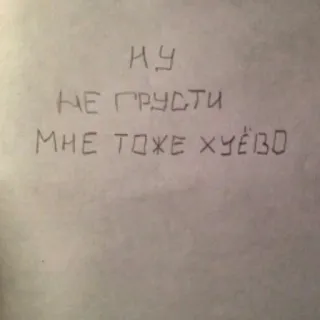 НУ
НЕ ГРУСТИ
МНЕ ТОЖЕ ХУЁВО